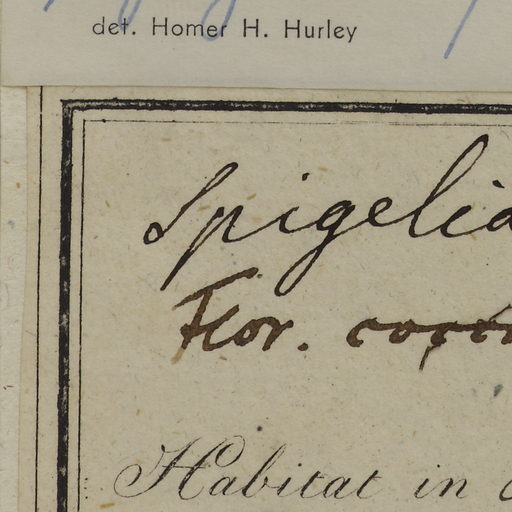 det. Homer H. Hurley
Spigelia
Flor.
Habitat in